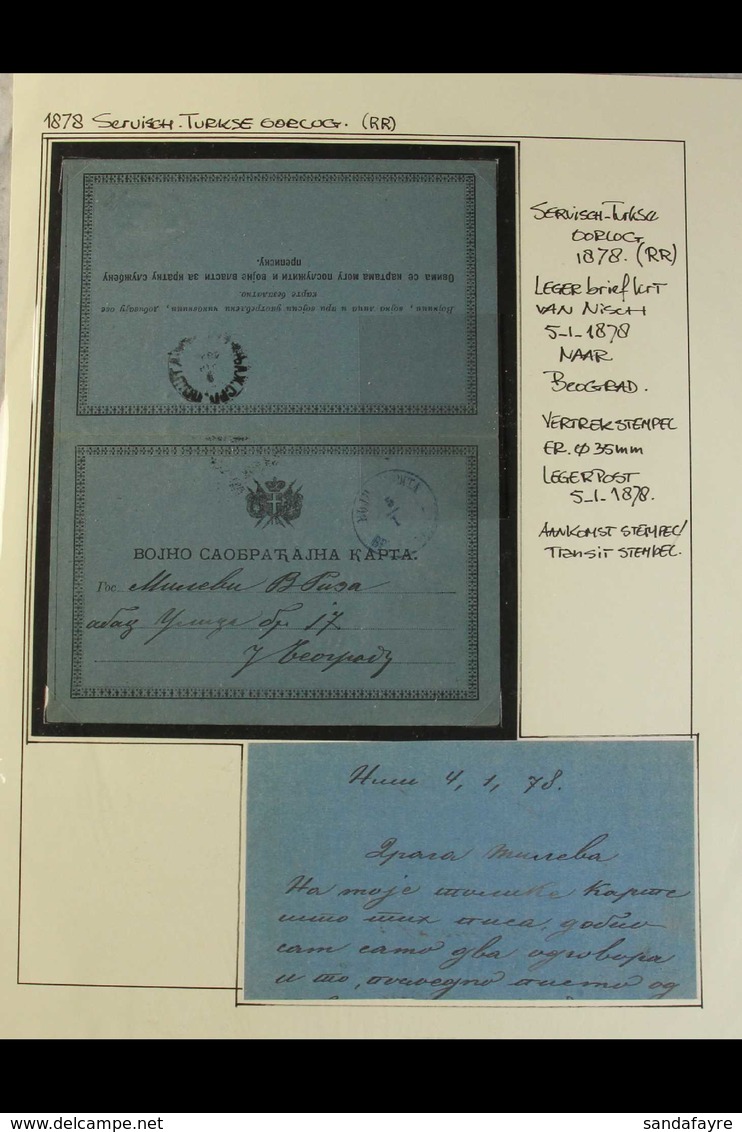 1878 SERVISCH-TURKSE OORLOG. (RR)
Војници, војна лица и при војсци употребљени чиновници, добивају ове
карте бесплатно.
Овима се картама могу послужити и војне власти за кратку службену
преписку.
ВОЈНО САОБРАЋАЈНА КАРТА.
Гос. Милеви В Риза
абац Улица бр. 17
у Београду
SERVISCH-TURKSE
OORLOG
1878. (RR)
LEGER briefkrt
VAN NISCH
5-1-1878
NAAR
BEOGRAD.
VERTREK STEMPEL
ER. φ 35mm
LEGERPOST
5-1-1878.
AANKOMST STEMPEL/
TRANSIT STEMPEL.
Ниш 4, 1, 78.
Драга Милева
На моје толике карте
што тих писа, добио
сам само два одговора
и то, последно писмо од
delcampe.net
sandafayre